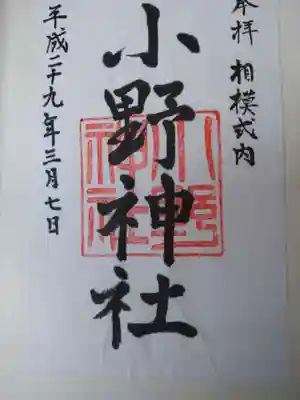 奉拝 相模式内
小野神社
平成二十九年三月七日